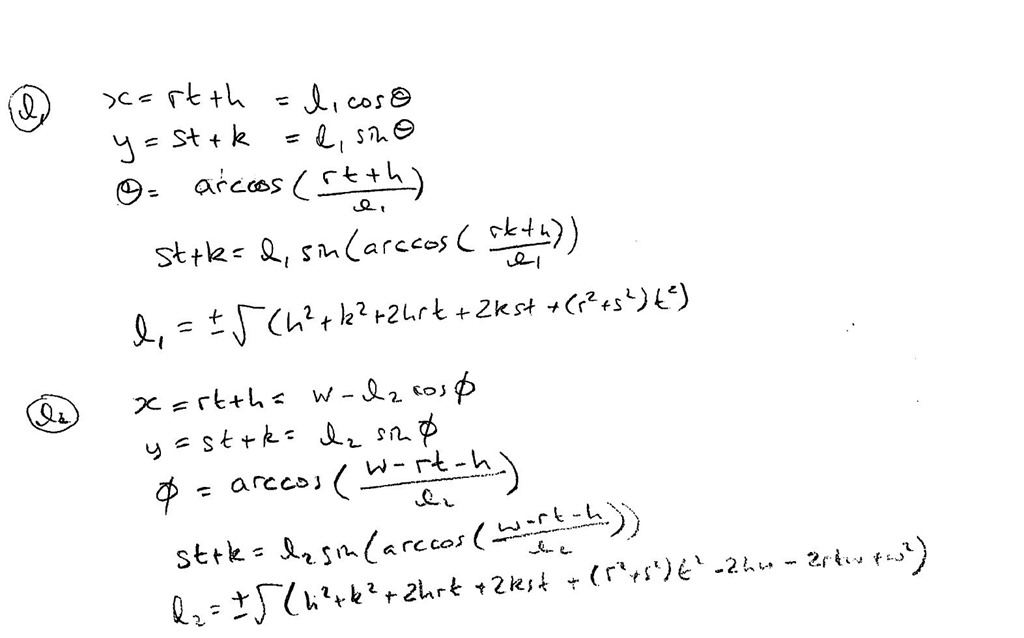 l₁ x = rt + h = l₁ cos Θ
y = st + k = l₁ sin Θ
Θ = arccos ( (rt + h) / l₁ )
st + k = l₁ sin (arccos ( (rt + h) / l₁ ))
l₁ = ± √ (h² + k² + 2hrt + 2kst + (r² + s²) t²)
l₂ x = rt + h = w - l₂ cos φ
y = st + k = l₂ sin φ
φ = arccos ( (w - rt - h) / l₂ )
st + k = l₂ sin (arccos ( (w - rt - h) / l₂ ))
l₂ = ± √ (h² + k² + 2hrt + 2kst + (r² + s²) t² - 2hw - 2rtw + w²)